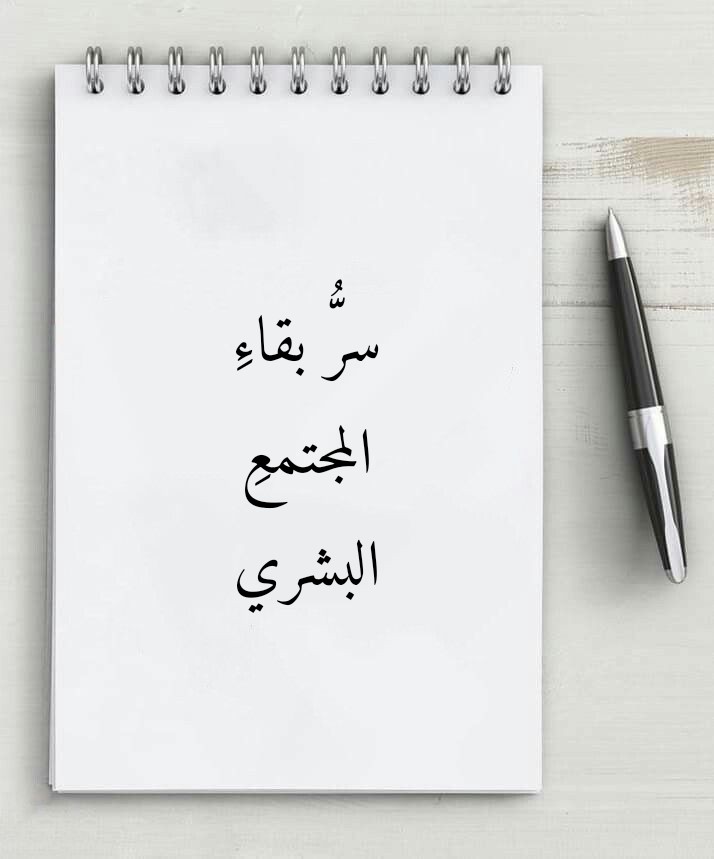 سرُّ بقاءِ
المجتمعِ
البشري